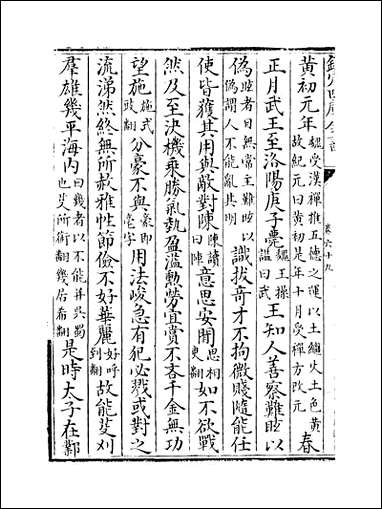 欽定四庫全書　卷六十九
黃初元年魏受漢禪推五德之運以土繼火土色黃故紀元曰黃初是年十月受禪方改元春
正月武王至洛陽庚子薨魏王操諡曰武王知人善察難眩以
偽眩者目無常主難眩以偽謂人不能亂其明識拔奇才不拘微賤隨能任
使皆獲其用與敵對陳陳讀曰陣意思安閒思相吏翻如不欲戰
然及至決機乘勝氣執盈溢勲勞宜賞不吝千金無功
望施施式豉翻分豪不與豪即毫字用法峻急有犯必戮或對之
流涕然終無所赦雅性節儉不好華麗好呼到翻故能芟刈
羣雄幾平海内曰幾者以不能并吳蜀也芟所銜翻幾居希翻是時太子在鄴